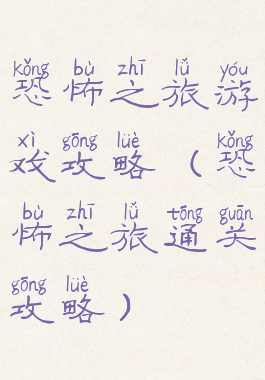 kǒng bù zhī lǚ yóu
恐怖之旅游
xì gōng lüè kǒng
戏攻略（恐
bù zhī lǚ tōng guān
怖之旅通关
gōng lüè
攻略）